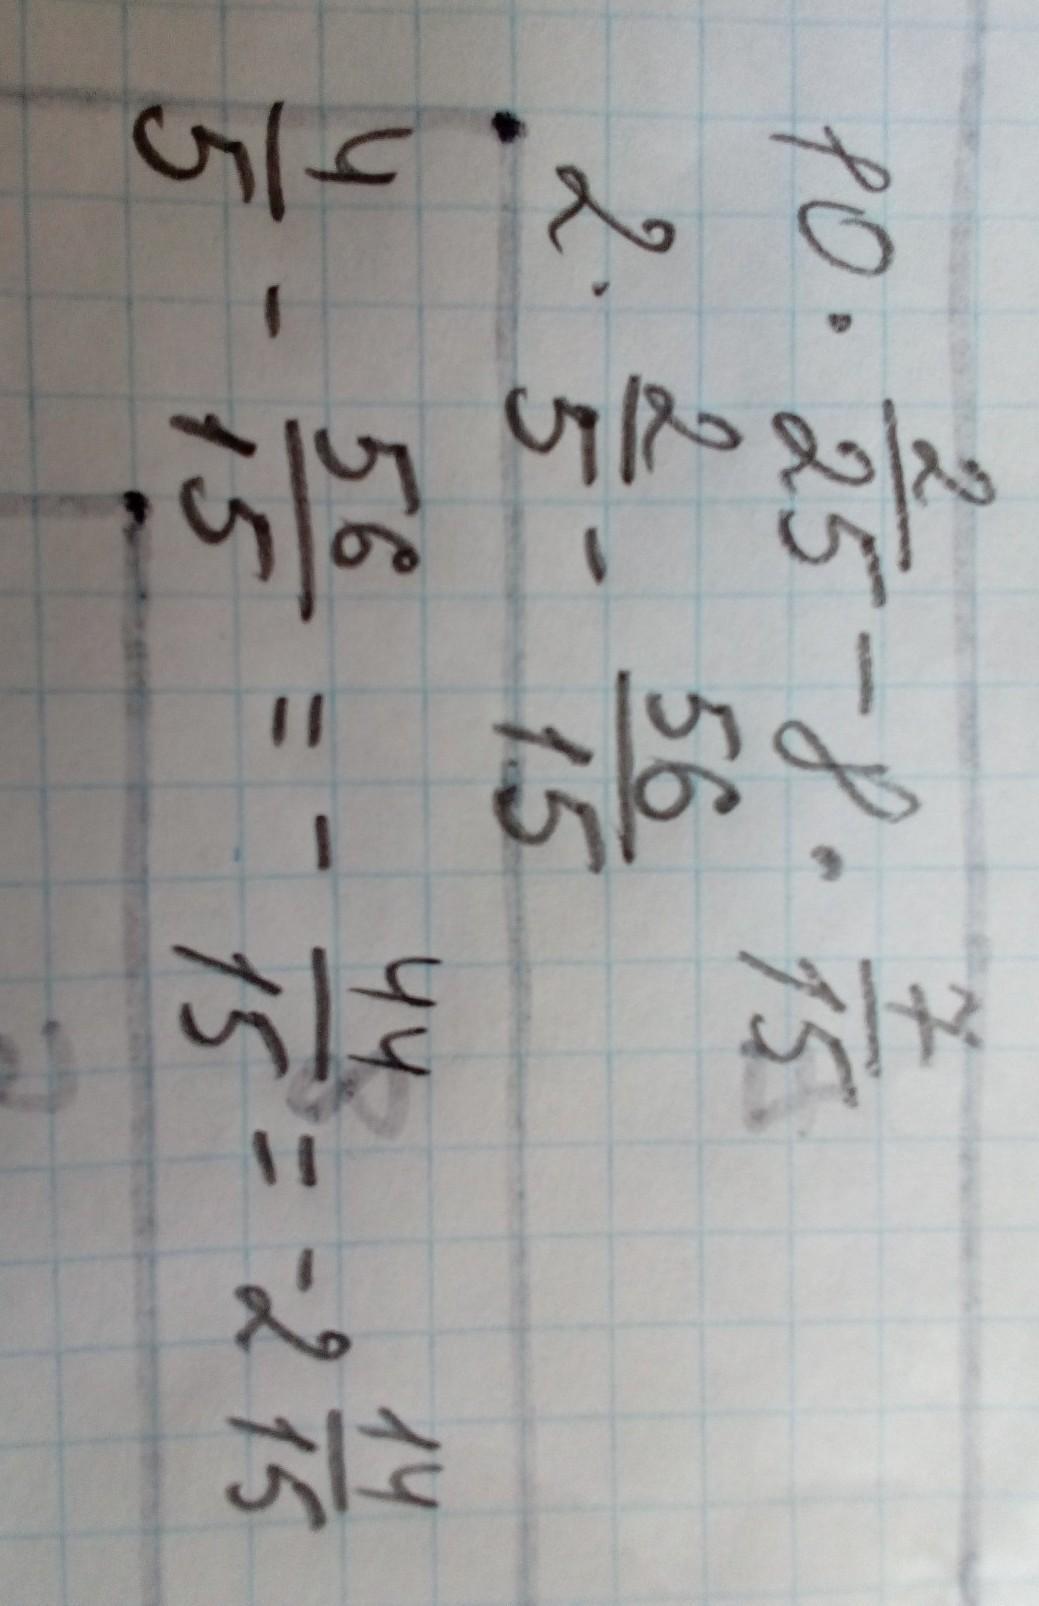 10 · 2/25 - 8 · 7/15
2 · 2/5 - 56/15
4/5 - 56/15 = - 44/15 = -2 14/15